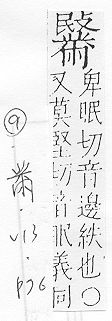 卑眠切音邊紩也○
又莫堅切音眠義同
⑨
黹
v13
p76